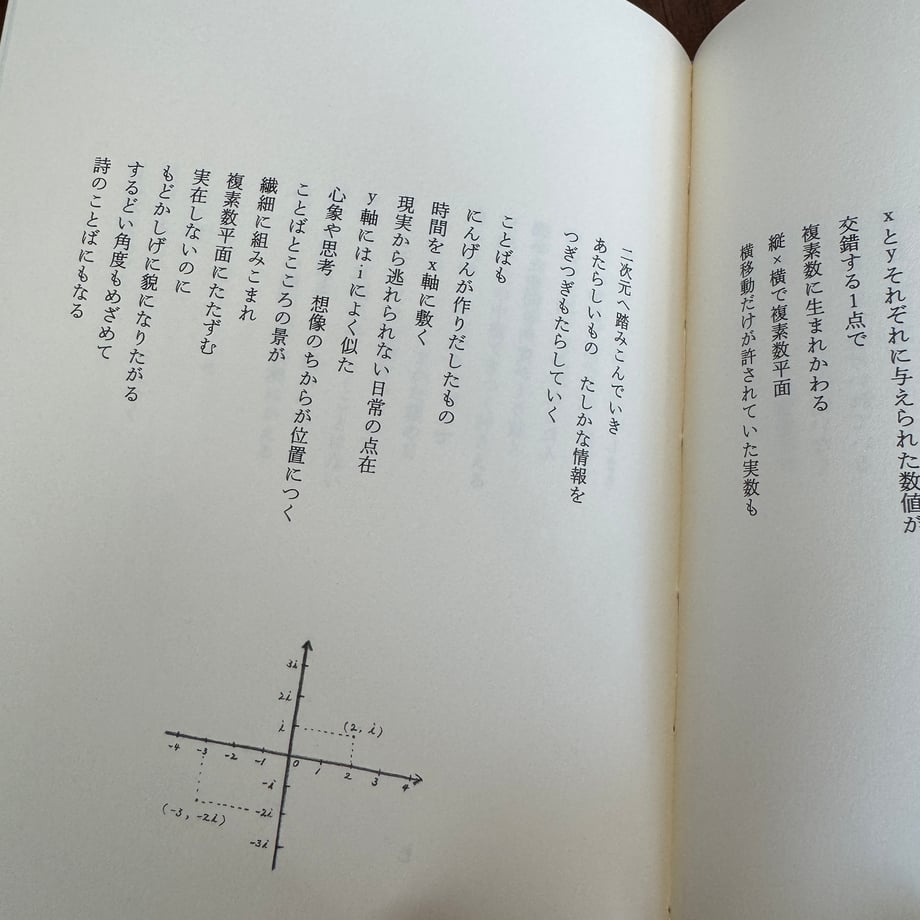 xとyそれぞれに与えられた数値が
交錯する1点で
複素数に生まれかわる
縦×横で複素数平面
横移動だけが許されていた実数も
二次元へ踏みこんでいき
あたらしいもの　たしかな情報を
つぎつぎもたらしていく
ことばも
にんげんが作りだしたもの
時間をx軸に敷く
現実から逃れられない日常の点在
y軸にはiによく似た
心象や思考　想像のちからが位置につく
ことばとこころの景が
繊細に組みこまれ
複素数平面にたたずむ
実在しないのに
もどかしげに貌になりたがる
するどい角度もめざめて
詩のことばにもなる
3i
2i
i
(2, i)
-4 -3 -2 -1 0 1 2 3 4
-i
-2i
(-3, -2i)
-3i